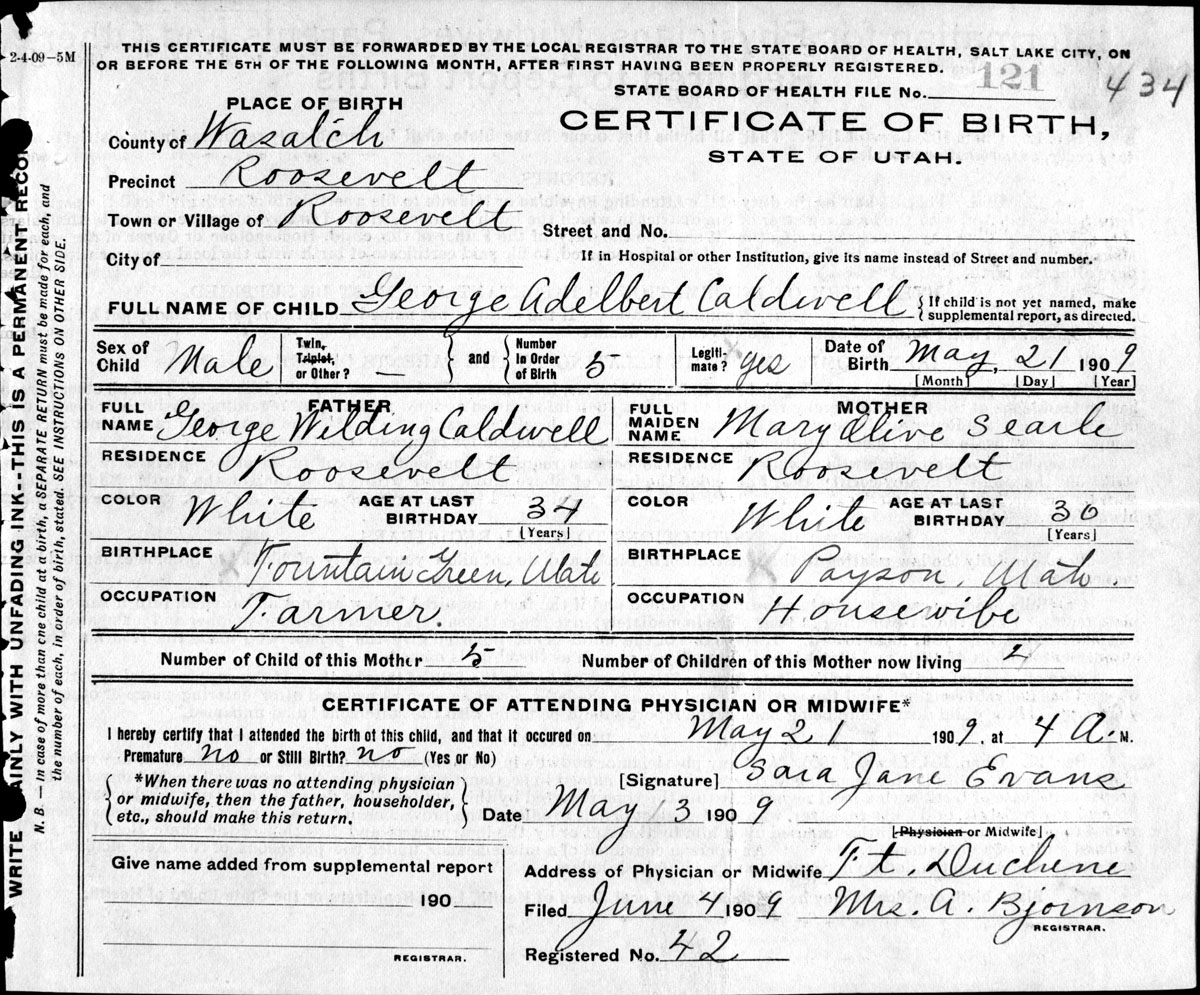 2-4-09-5M
THIS CERTIFICATE MUST BE FORWARDED BY THE LOCAL REGISTRAR TO THE STATE BOARD OF HEALTH, SALT LAKE CITY, ON
OR BEFORE THE 5TH OF THE FOLLOWING MONTH, AFTER FIRST HAVING BEEN PROPERLY REGISTERED.
STATE BOARD OF HEALTH FILE No. 121 434
PLACE OF BIRTH
CERTIFICATE OF BIRTH,
STATE OF UTAH.
County of Wasatch
Precinct Roosevelt
Town or Village of Roosevelt
Street and No.
City of
If in a Hospital or other Institution, give its name instead of Street and number.
FULL NAME OF CHILD George Adelbert Caldwell { If child is not yet named, make
supplemental report, as directed.
Sex of Child Male Twin, Triplet, or Other? — } and { Number in Order of Birth 5 Legiti-mate? yes Date of Birth May, 21 1909
[Month] [Day] [Year]
FATHER
FULL NAME George Wilding Caldwell
RESIDENCE Roosevelt
COLOR White AGE AT LAST BIRTHDAY 34
[Years]
BIRTHPLACE Fountain Green, Utah
OCCUPATION Farmer.
MOTHER
FULL MAIDEN NAME Mary Olive Searle
RESIDENCE Roosevelt
COLOR White AGE AT LAST BIRTHDAY 30
[Years]
BIRTHPLACE Payson, Utah
OCCUPATION Housewife
Number of Child of this Mother 5 Number of Children of this Mother now living 4
CERTIFICATE OF ATTENDING PHYSICIAN OR MIDWIFE*
I hereby certify that I attended the birth of this child, and that it occured on May 21 1909, at 4 A. M.
Premature no or Still Birth? no (Yes or No)
*When there was no attending physician
or midwife, then the father, householder,
etc., should make this return.
[Signature] Sara Jane Evans
Date May 3 1909
[Physician or Midwife]
Give name added from supplemental report
190
REGISTRAR.
Address of Physician or Midwife Ft. Duchene
Filed June 4 1909 Mrs. A. Bjornson
REGISTRAR.
Registered No. 42
WRITE AINLY WITH UNFADING INK--THIS IS A PERMANENT RECOR
N. B.—In case of more than one child at a birth, a SEPARATE RETURN must be made for each, and
the number of each, in order of birth, stated. SEE INSTRUCTIONS ON OTHER SIDE.